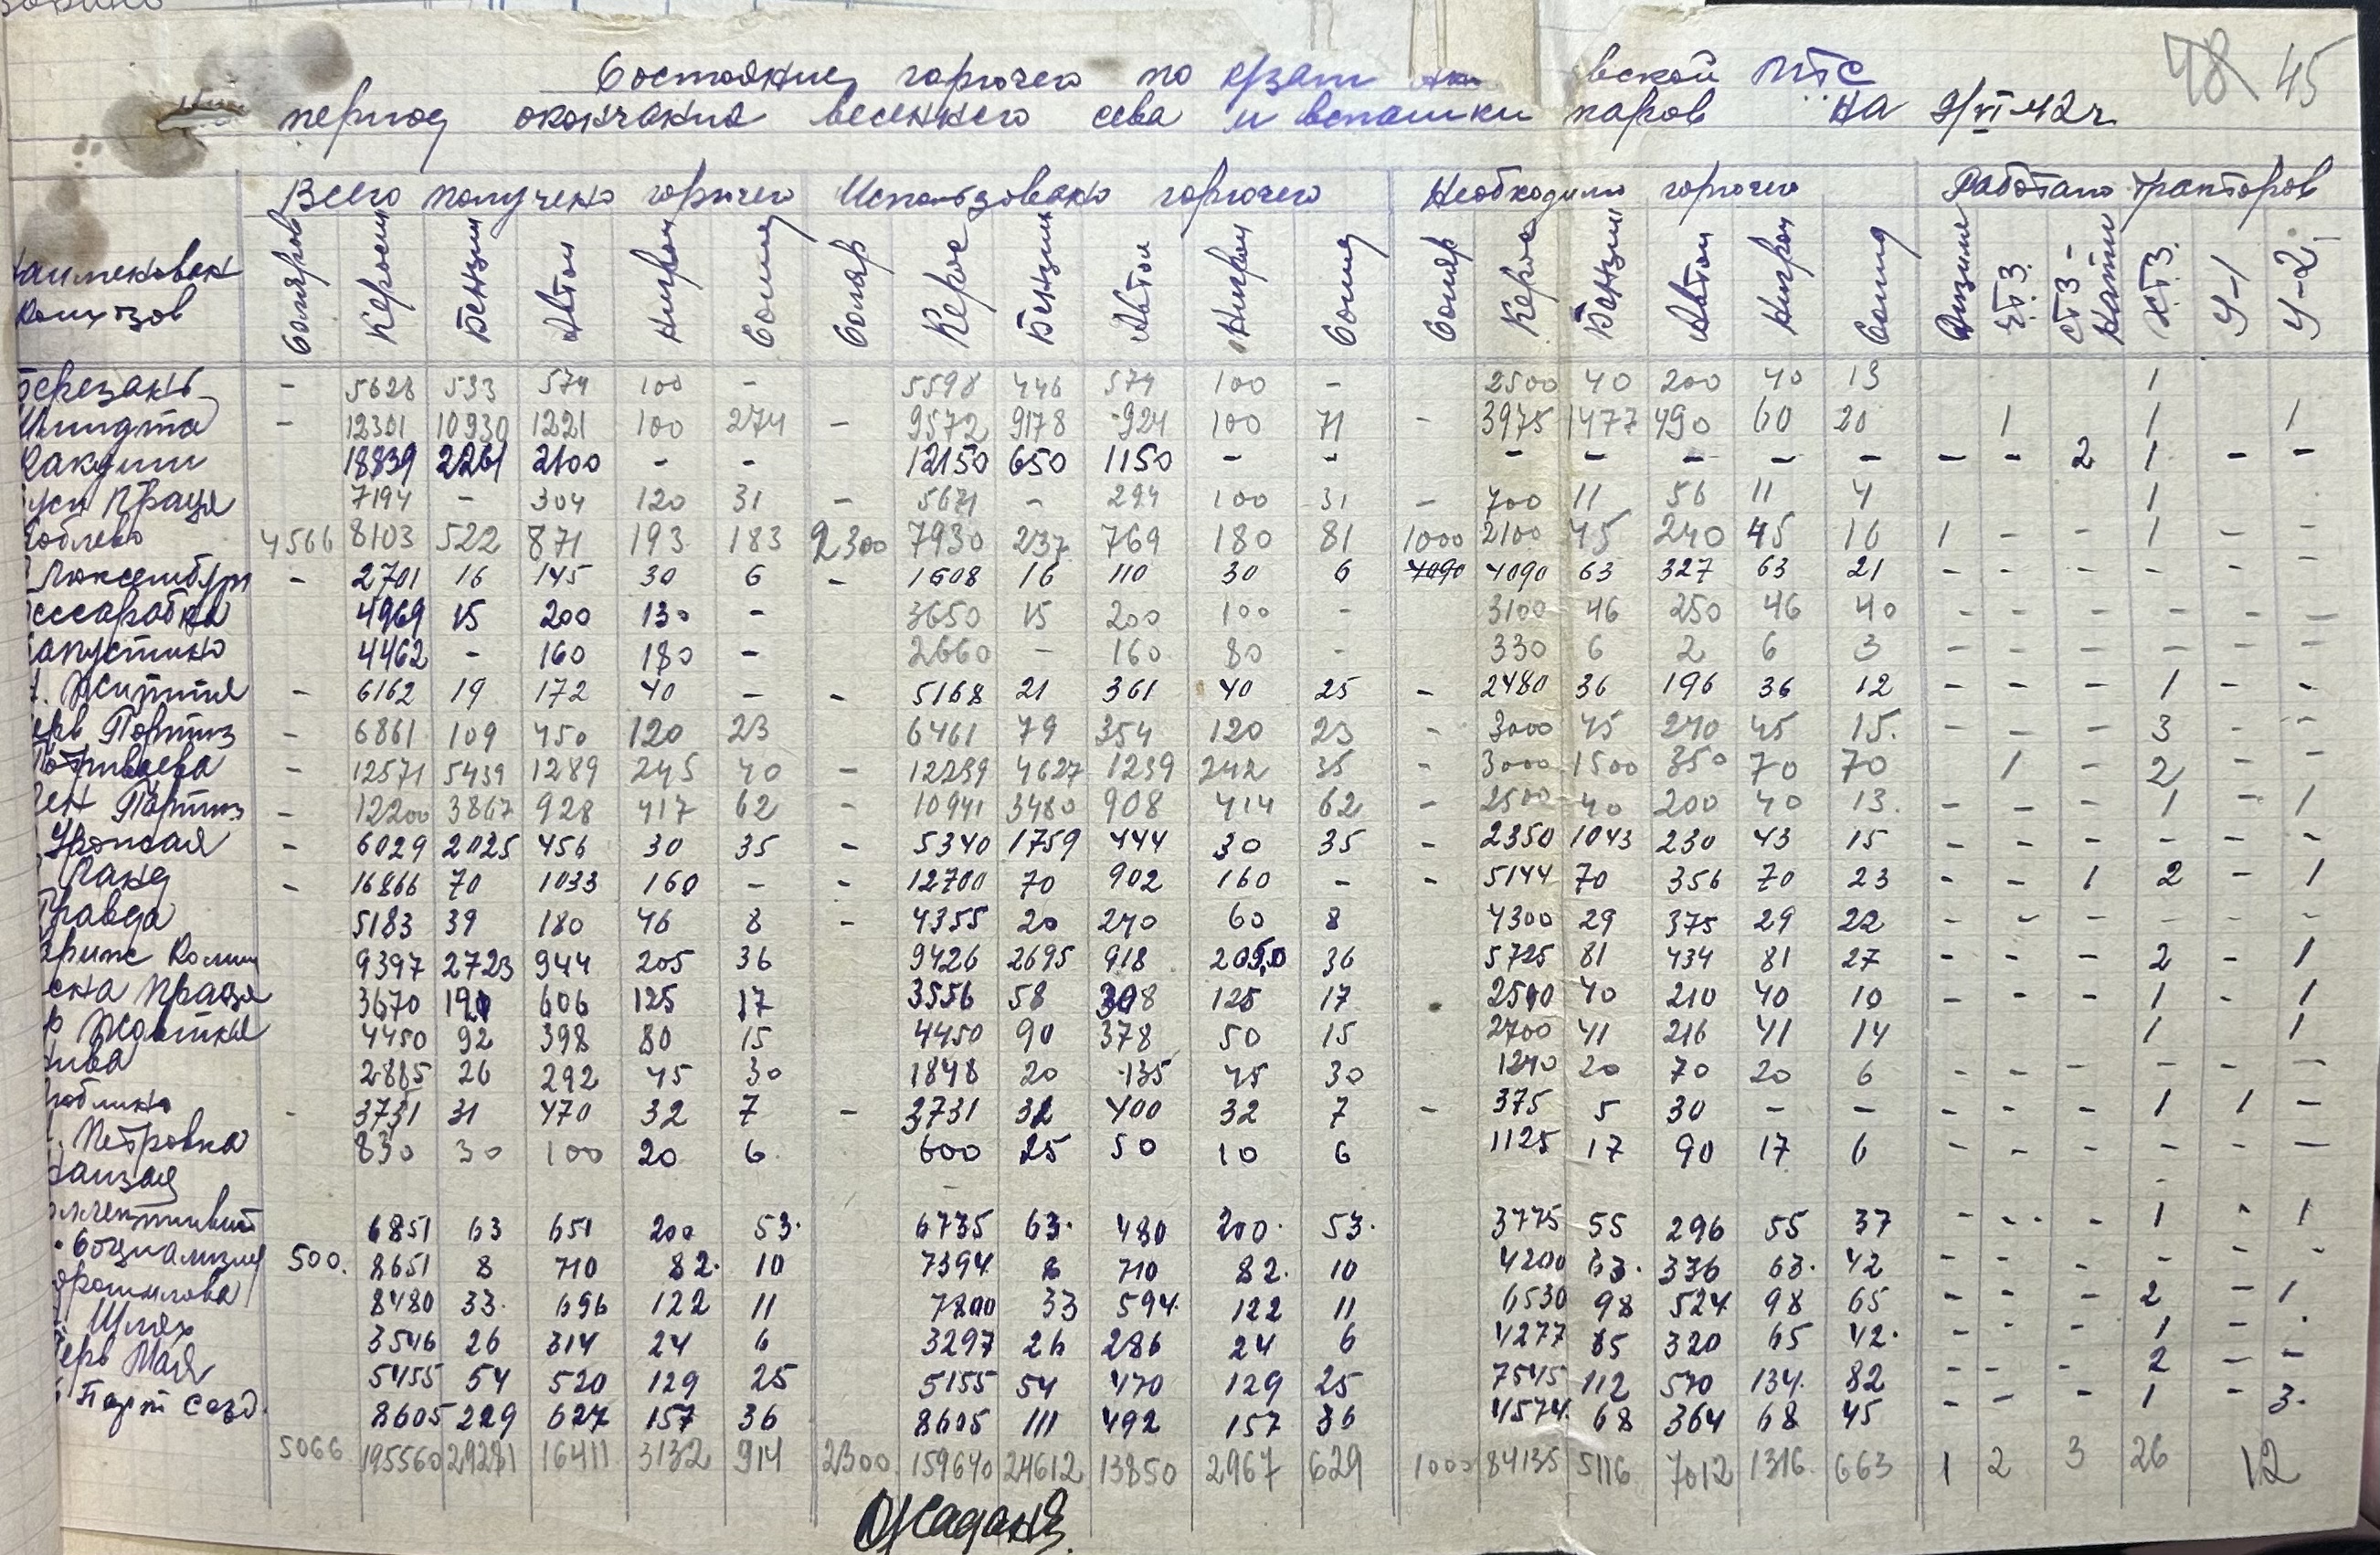 48 45
Состояние горючего по вской МТС
период окончания весеннего сева и вспашки паров на 9/VI-42г
Всего получено горючего Использовано горючего Необходимо горючего Работало тракторов
аименован колхозов Соляров Керосин Бензин Автол Нигрол Солид Соляр Керос Бензин Автол Нигрол Солид Соляр Керос Бензин Автол Нигрол Солид ЧТЗ СТЗ-Натти ХТЗ У-1 У-2
Березань - 5628 533 574 100 - 5598 446 574 100 - 2500 40 200 40 13 1
Шмидта - 12301 10930 1221 100 274 - 9572 9178 924 100 71 - 3975 1477 490 60 20 1 1 1
18839 2261 2100 - - 12150 650 1150 - - - - - - - - - 2 1 - -
Праця 7194 - 304 120 31 - 5671 - 294 100 31 - 700 11 56 11 4 1
облево 4566 8103 522 871 193 183 2300 7930 237 769 180 81 1000 2100 45 240 45 16 1 - - 1 - -
Люксембург - 2701 16 145 30 6 - 1608 16 110 30 6 4090 4090 63 327 63 21 - - - - - -
ессарабка 4969 15 200 130 - 3650 15 200 100 - 3100 46 250 46 40 - - - - - -
апустино 4462 - 160 180 - 2660 - 160 80 - 330 6 2 6 3 - - - - - -
Життя - 6162 19 172 40 - - 5168 21 361 40 25 - 2480 36 196 36 12 - - - 1 - -
ерв Портиз - 6861 109 450 120 23 6461 79 354 120 23 - 3000 45 240 45 15 - - - 3 - -
- 12571 5439 1289 245 40 - 12239 4627 1239 242 35 - 3000 1500 350 70 70 1 - 2 - -
ен Партиз - 12200 3867 928 417 62 - 10941 3480 908 414 62 - 2500 40 200 40 13 - - - 1 - 1
Урожая - 6029 2025 456 30 35 - 5340 1759 444 30 35 - 2350 1043 230 43 15 - - - - - -
Ланд - 16866 70 1033 160 - - 12700 70 902 160 - - 5144 70 356 70 23 - - 1 2 - 1
Правда 5183 39 180 46 8 - 4355 20 240 60 8 4300 29 375 29 22 - - - - - -
ариж Комun 9397 2723 944 205 36 9426 2695 918 205,0 36 5725 81 434 81 27 - - - 2 - 1
сна Праця 3670 190 606 125 17 3556 58 308 125 17 2500 40 210 40 10 - - - 1 - 1
Жовтня 4450 92 398 80 15 4450 90 378 50 15 2700 41 216 41 14 1 1
ива 2885 26 292 45 30 1848 20 135 45 30 1240 20 70 20 6 - - - - - -
юблино - 3731 31 470 32 7 - 3731 32 400 32 7 - 375 5 30 - - - - - 1 1 -
Петровка 830 30 100 20 6 600 25 50 10 6 1125 17 90 17 6 - - - - - -
6851 63 651 200 53 6735 63 480 200 53 3775 55 296 55 37 - - - 1 - 1
Социализм 500 8651 8 710 82 10 7394 8 710 82 10 4200 63 336 63 42 - - - - - -
орошилова 8480 33 696 122 11 7800 33 594 122 11 6530 98 524 98 65 - - - 2 - 1
Шлях 3546 26 314 24 6 3297 26 286 24 6 4277 65 320 65 42 - - - 1 -
Перв Мая 5455 54 520 129 25 5155 54 470 129 25 7545 112 570 134 82 - - - 2 - -
Парт сезд 8605 229 627 157 36 8605 111 492 157 36 4574 68 364 68 45 - - - 1 - 3
5066 195560 29281 16411 3132 914 2300 159640 24612 13850 2967 629 1000 84135 5116 7012 1316 663 1 2 3 26 12